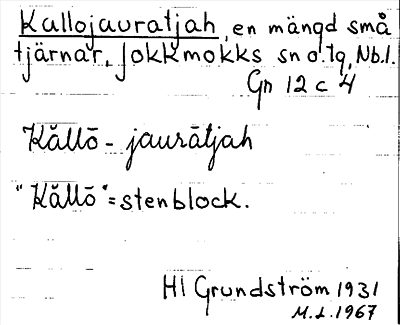 Kallojauratjah, en mängd små
tjärnar, Jokkmokks sn o. tg, Nb.l.
Gn 12 c 4
Kållō - jaurātjah
"Kållō" = stenblock.
Hl Grundström 1931
M.L. 1967